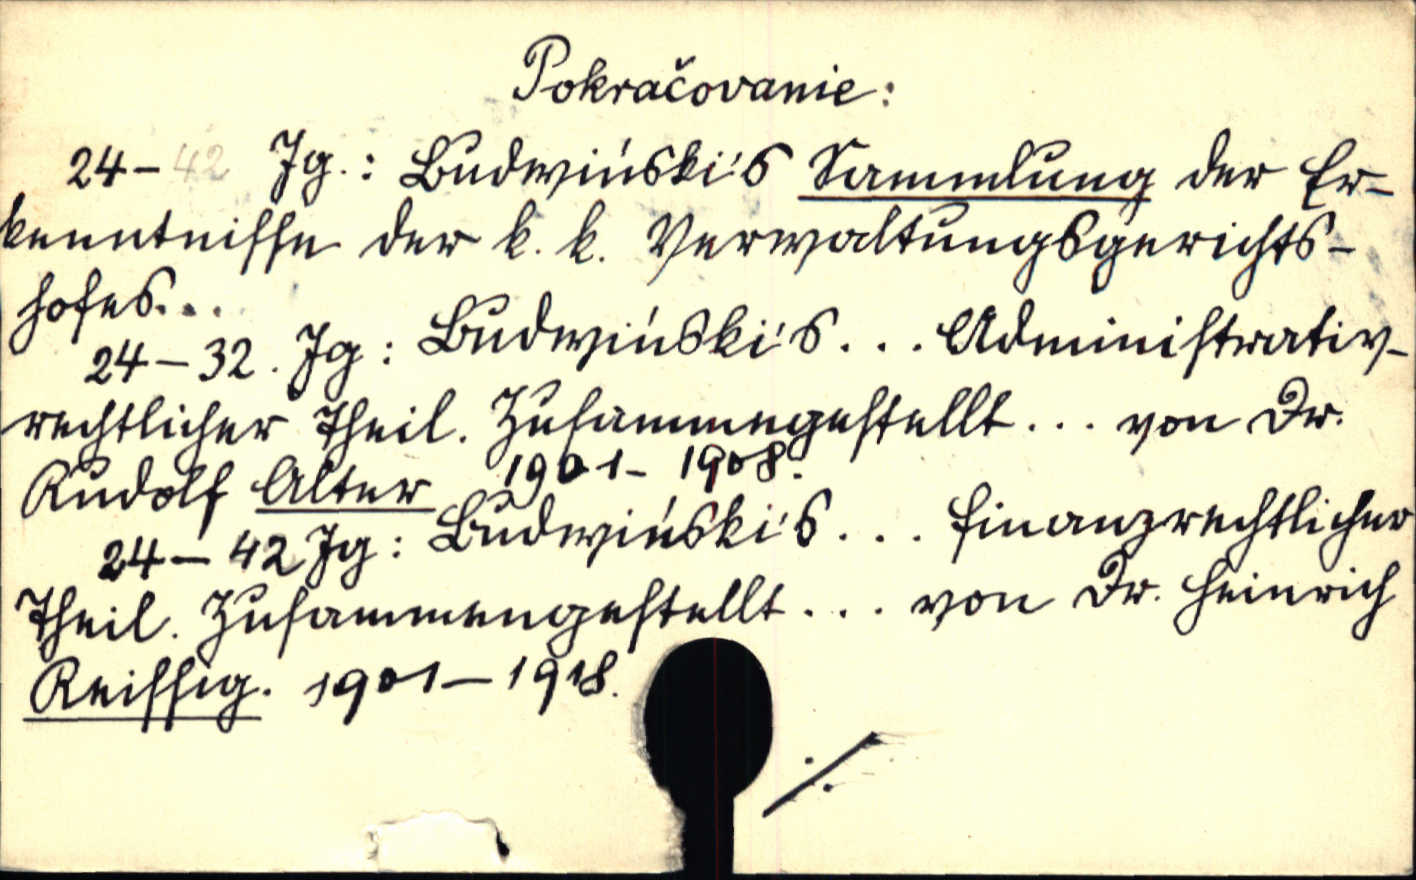 Pokračovanie:
24-42 Jg.: Budwiński's Sammlung der Er-
kenntnisse der k. k. Verwaltungsgerichts-
hofes...
24-32. Jg: Budwiński's... Administrativ-
rechtlicher Theil. Zusammengestellt... von Dr.
Rudolf Alter 1901-1908.
24-42 Jg: Budwiński's... finanzrechtlicher
Theil. Zusammengestellt... von Dr. Heinrich
Reissig. 1901-1918.
./.